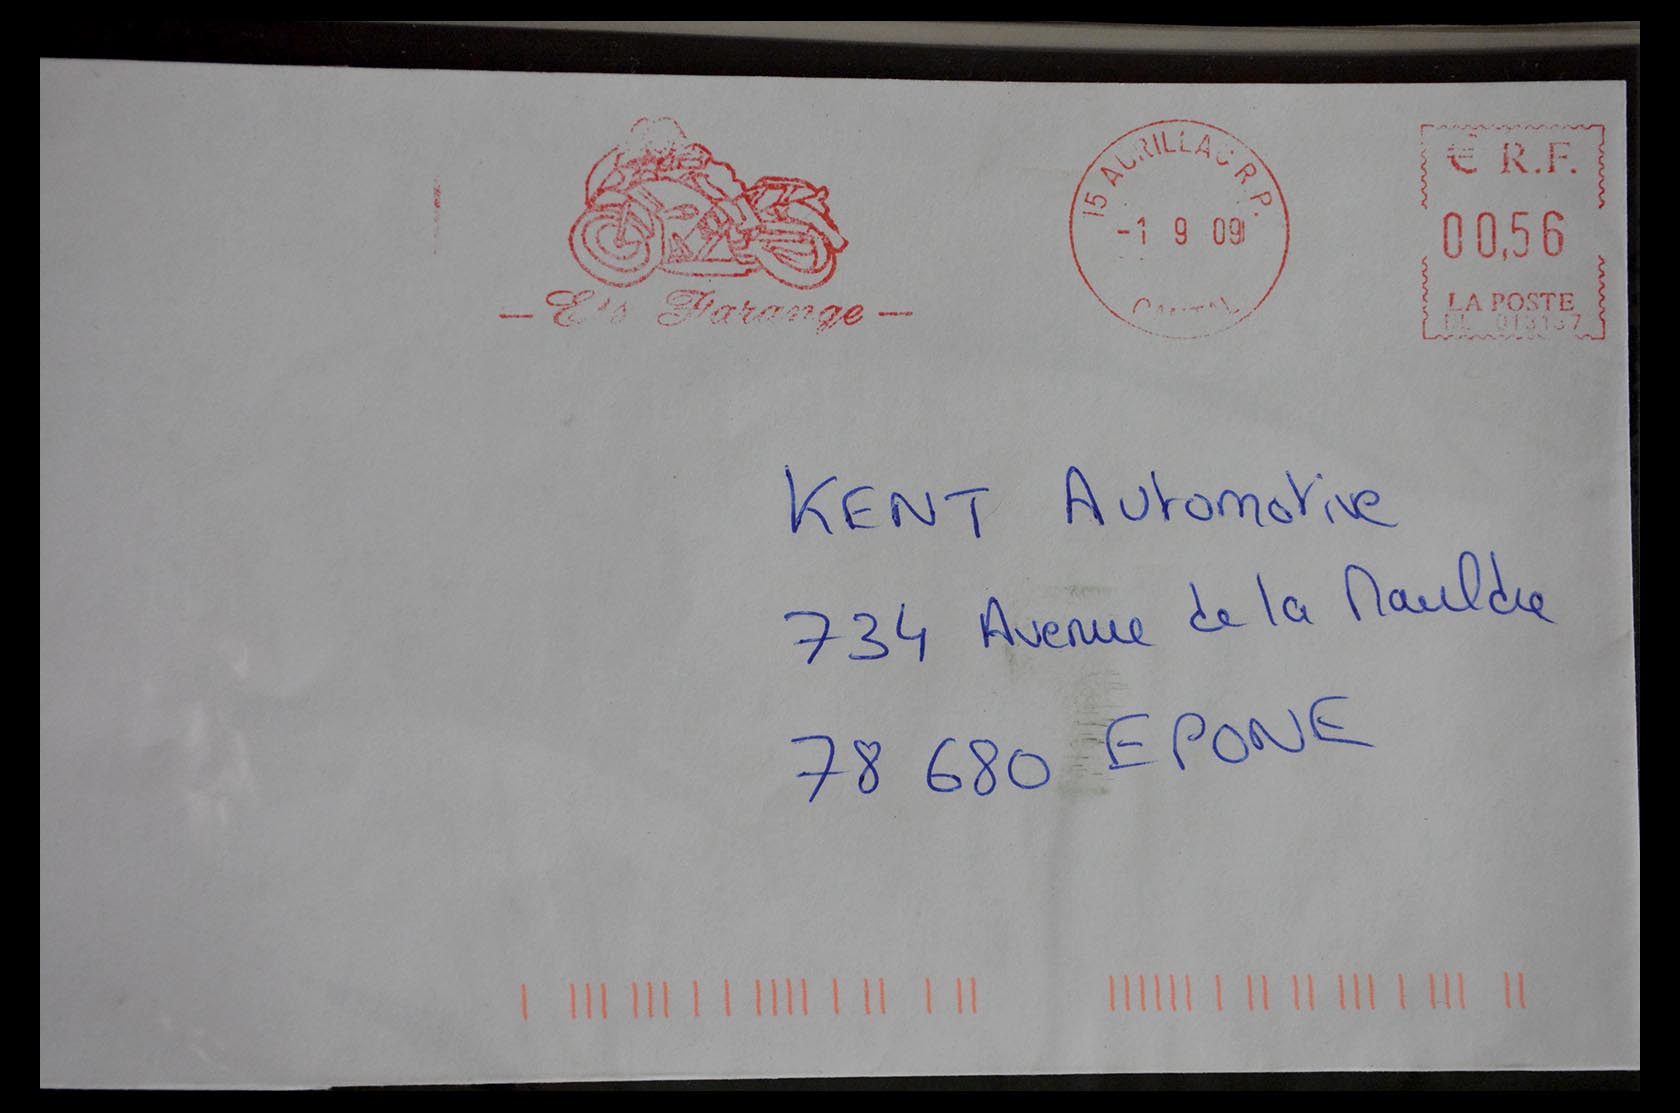 15 AURILLAC R.P.
-1 9 09
CANTAL
€ R.F.
00,56
LA POSTE
— Ets Farange —
KENT Automotive
734 Avenue de la Mauldre
78 680 EPONE